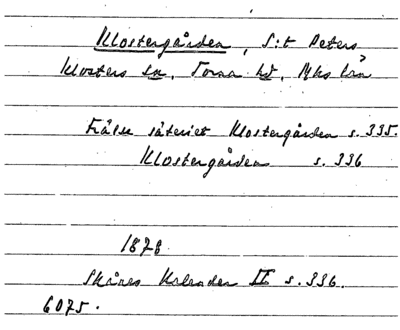 Klostergården, S:t Peters
Klosters sn, Torna hd, Mhs län
Frälse säteriet Klostergården s. 335.
Klostergården s. 336
1878
Skånes Kalender II s. 336.
6075.